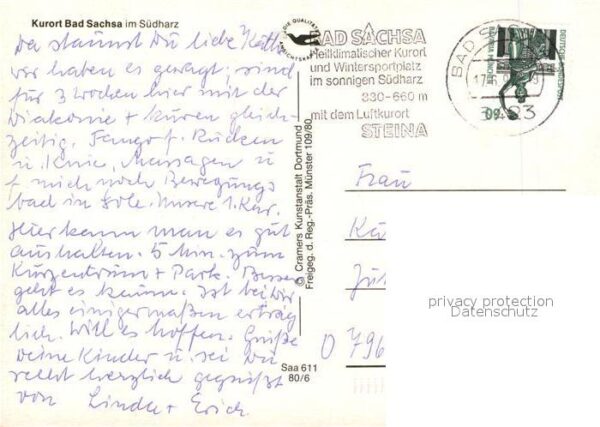 Kurort Bad Sachsa im Südharz
Da staunst Du liebe Käthe
wir haben es gewagt, sind
für 3 Wochen hier mit der
Diakonie + kuren gleich-
zeitig. Fango f. Rücken
u Knie, Massagen u
f. mich noch Bewegungs
bad in Sole. Unsere 1. Kur.
Hier kann man es gut
aushalten. 5 Min. zum
Kurzentrum + Park. Besser
geht es kaum. Ist bei Dir
alles einigermaßen erträg
lich. Will es hoffen. Grüße
Deine Kinder u. sei Du
selbst herzlich gegrüßt
von Linda + Erich.
DIE QUALITÄTS
ANSICHTSKARTE
© Cramers Kunstanstalt Dortmund
Freigeg. d. Reg.-Präs. Münster 109/80
Saa 611
80/6
BAD SACHSA
Heilklimatischer Kurort
und Wintersportplatz
im sonnigen Südharz
330-660 m
mit dem Luftkurort
STEINA
BAD SACHSA
Frau
Kä
O 796
privacy protection
Datenschutz